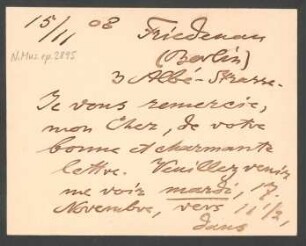 15/11 08 Friedenau
(Berlin)
N.Mus.ep. 2895
3 Albé-Strasse.
Je vous remercie,
mon Cher, de votre
bonne et charmante
lettre. Veuillez venir
me voir mardi, 17.
Novembre, vers 11 1/2,
dans